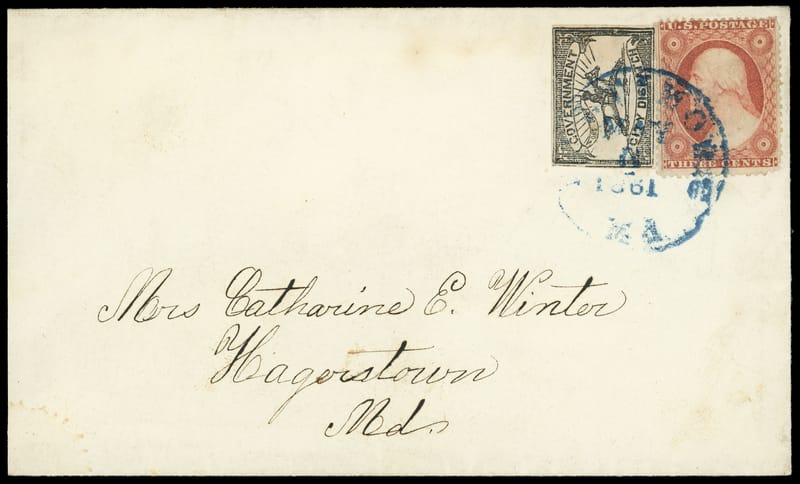 GOVERNMENT
CITY DISPATCH
U.S. POSTAGE
THREE CENTS
1861
Md
Mrs Catharine E. Winter
Hagerstown
Md.